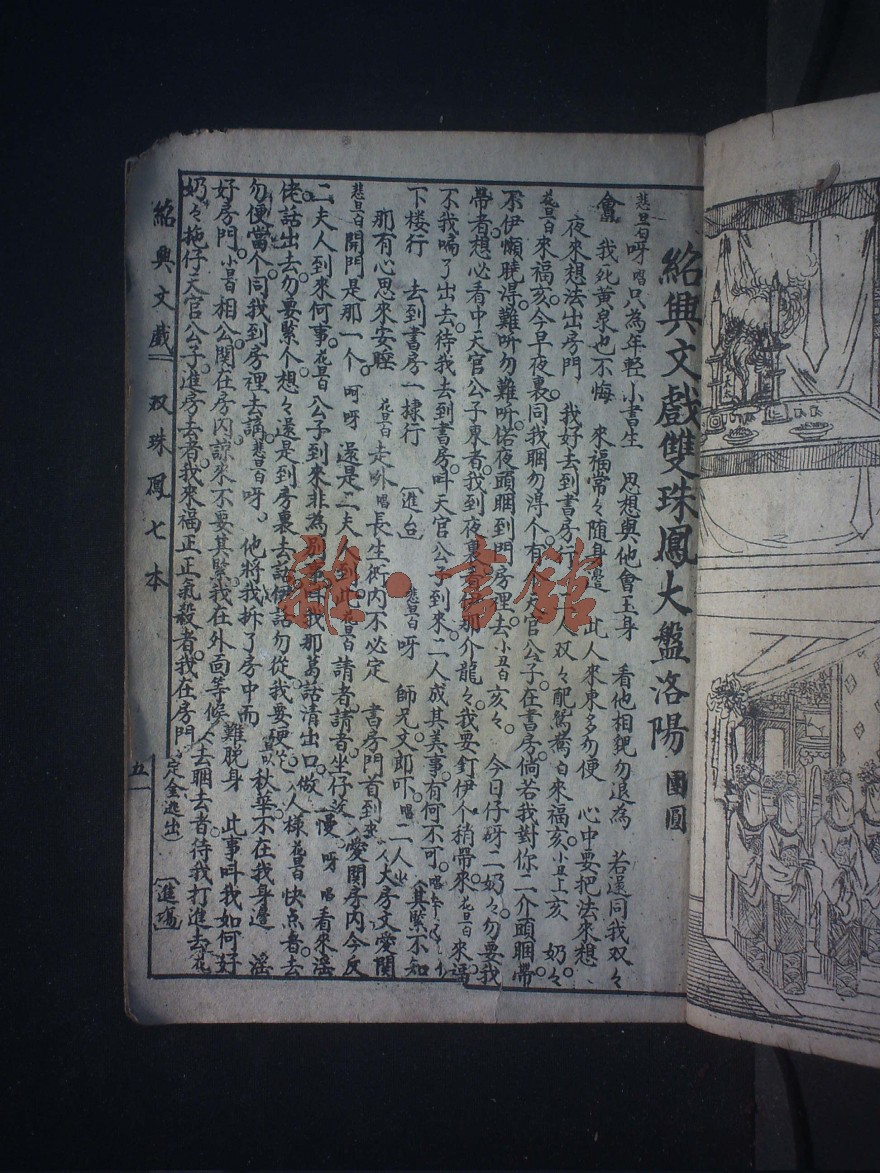 紹興文戲雙珠鳳大盤洛陽 團圓
悲旦白呀唱只為年輕小書生 思想與他會玉身 看他相貌勿退為 若還同我双々
會 我死黃泉也不悔 來福常々隨身邊 此人來東多勿便 心中要把法來想
夜來想法出房門 我好去到書房行 人双々配鴛鴦白來福亥小丑上亥 奶々
花旦白來福亥今早夜裏同我睏勿淂个有 天官公子在書房倘若我對你二介頭睏帶
不伊懶曉淂難听勿難听偌夜頭睏到門房裡去小丑白亥々 今日仔呀二奶々勿要我
帶者想必看中天官公子東者我到夜裏 那介龍々我要釘伊个稍帶來花旦白來福
不我嗬了出去待我去到書房呌天官公子到來二人成其美事有何不可
下楼行 去到書房一隸行 〔進台〕 悲旦白呀 師兄文郎吓唱二人 其緊不知
那有心思來安睡 花旦白走吓唱長生術内不必定 書房門首到來 大房文愛関
悲旦白開門是那一个 呵呀 還是二夫人到此花旦白請者請者坐仔 愛関房内今反
二夫人到來何事花旦白公子到來非為別 我那葛話清出口做 慢 呀 唱看來淫
佬話出去勿要緊个想々還是到房裏去話伊話勿從我要硬 人樣花旦白快点者去
勿便當个同我到房裡去講悲旦白呀 他將我拆了房中而 秋華不在我身邊 淫
好房門小丑白相公関在房内諒來不要其緊我在外面等候 難脫身 此事呌我如何好
奶々拖仔天官公子進房去者我來福正正氣殺者我在房門 人去睏去者待我打進去花
定金逃出〕 〔進場〕
紹興文戲 双珠鳳七本
五
雜·書館